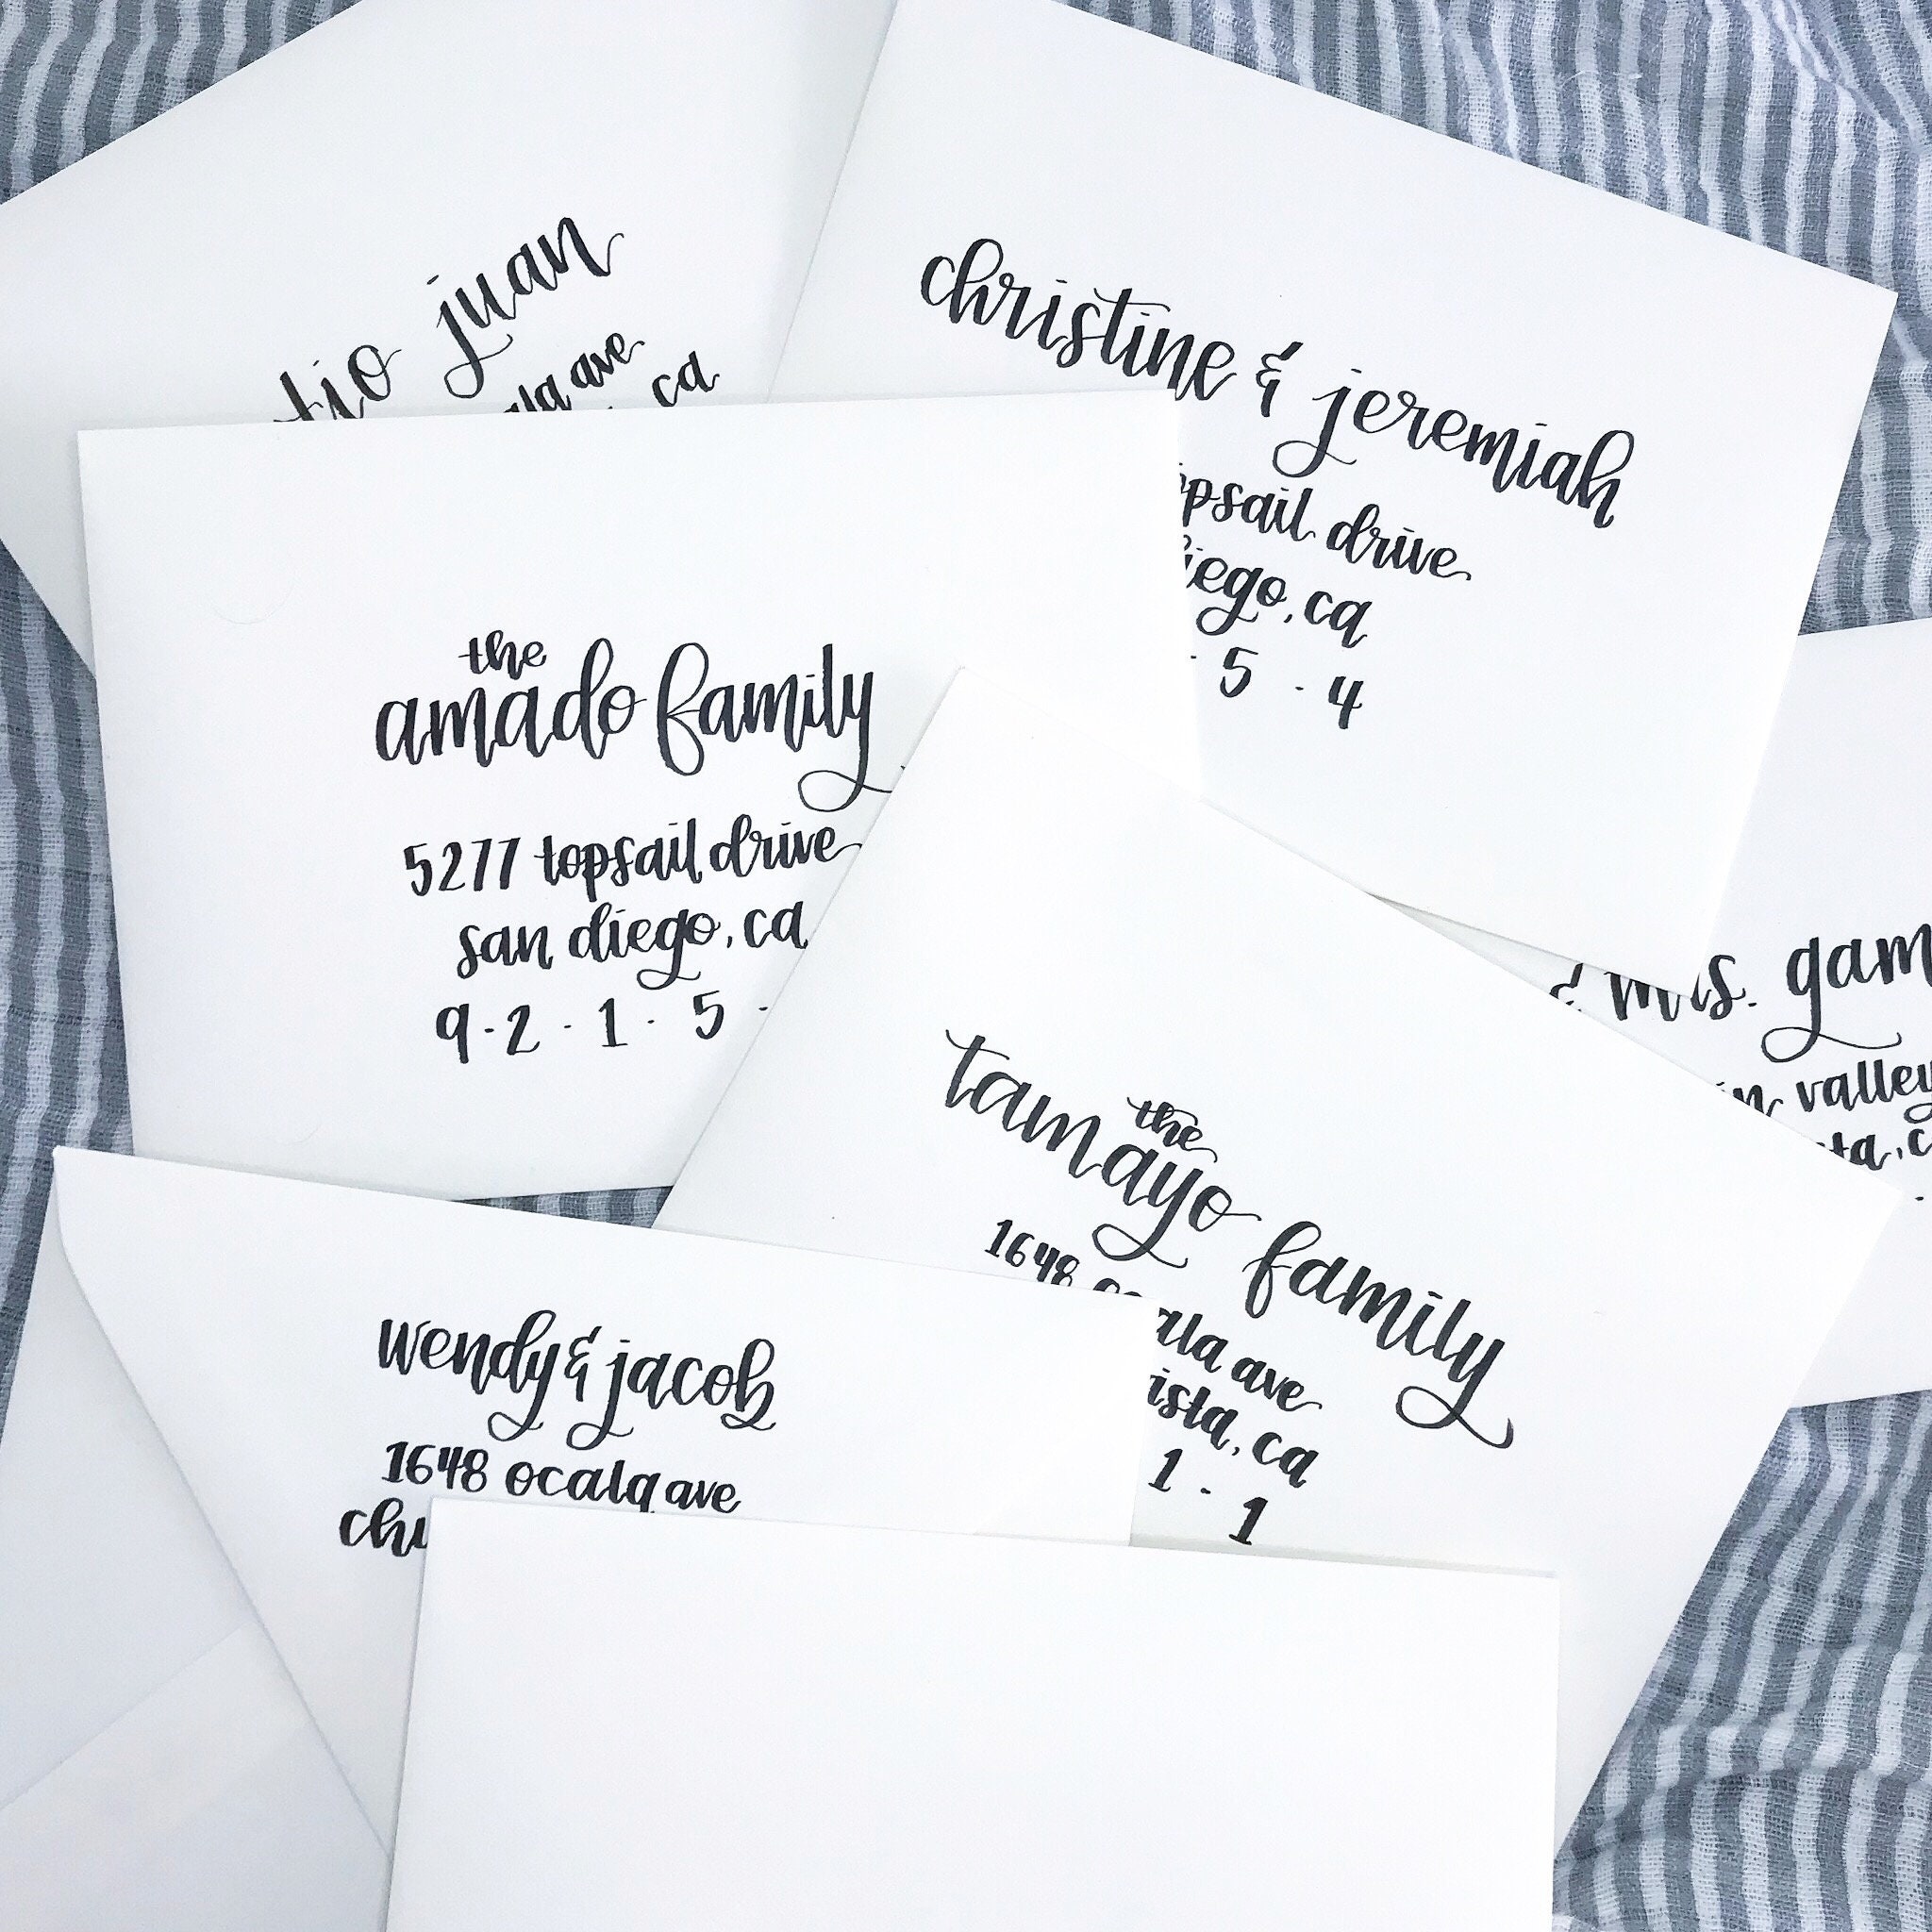 tio juan
ave
ca
christine & jeremiah
drive
ca
5 - 4
the
amado family
5277 topsail drive
san diego, ca
9 - 2 - 1 - 5 -
& mrs.
valley
the
tamayo family
1648
ave
ca
1 - 1
wendy & jacob
1648 ocala ave